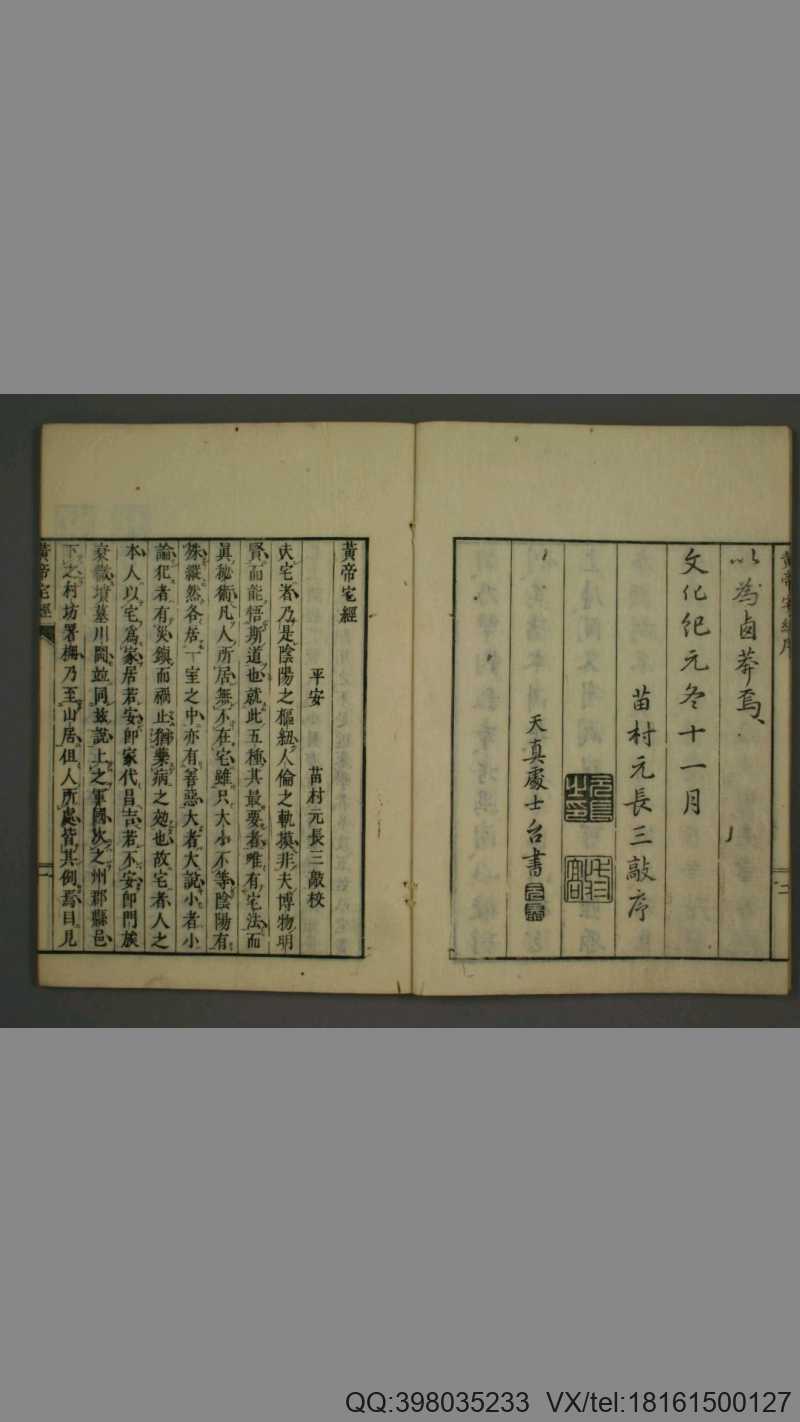 以為鹵莽焉
文化紀元冬十一月
苗村元長三敲序
天真處士台書
黃帝宅經
平安 苗村元長三敲校
夫宅者乃是陰陽之樞紐人倫之軌摸非夫博物明
賢而能悟斯道也就此五種其最要者唯有宅法而
眞秘術凡人所居無不在宅雖只大小不等陰陽有
殊縱然各居一室之中亦有善惡大者大說小者小
論犯者有災鎮而禍止猶藥病之効也故宅者人之
本人以宅爲家居若安卽家代昌吉若不安卽門族
衰微墳墓川岡並同玆說上之軍國次之州郡縣邑
下之村坊署柵乃至山居但人所處皆其例焉目見
黃帝宅經
QQ:398035233 VX/tel:18161500127